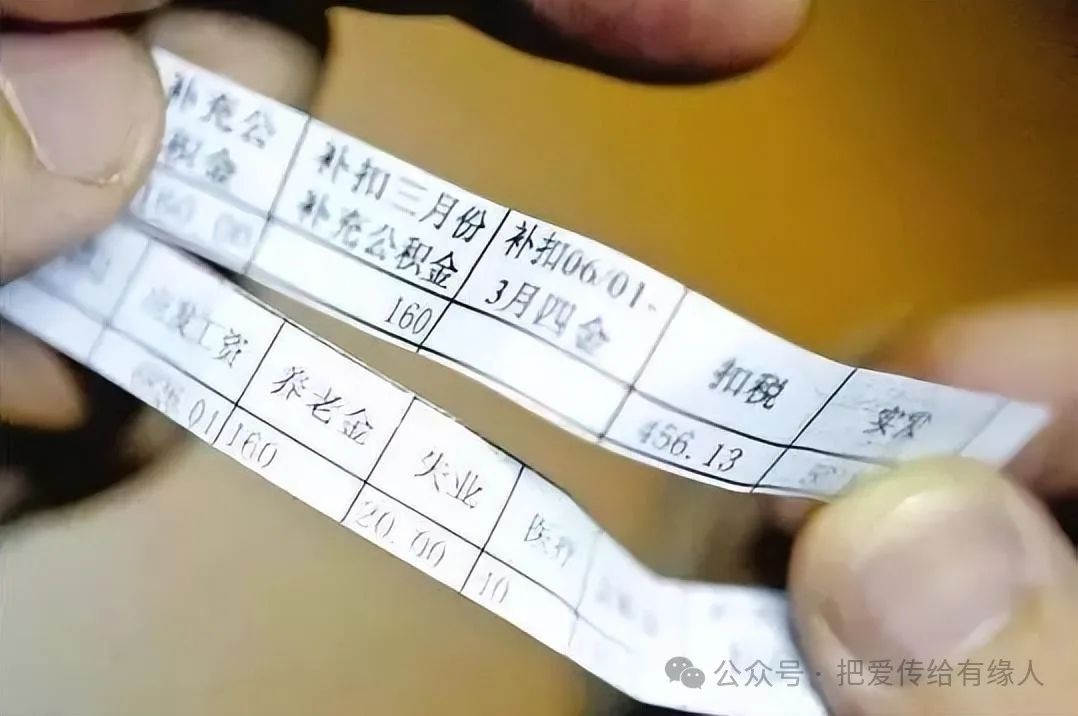 补充公
积金
补扣三月份
补充公积金
160
补扣06/01-
3月四金
扣税
456.13
实发
应发工资
01
养老金
160
失业
20.00
医疗
40
公众号 · 把爱传给有缘人